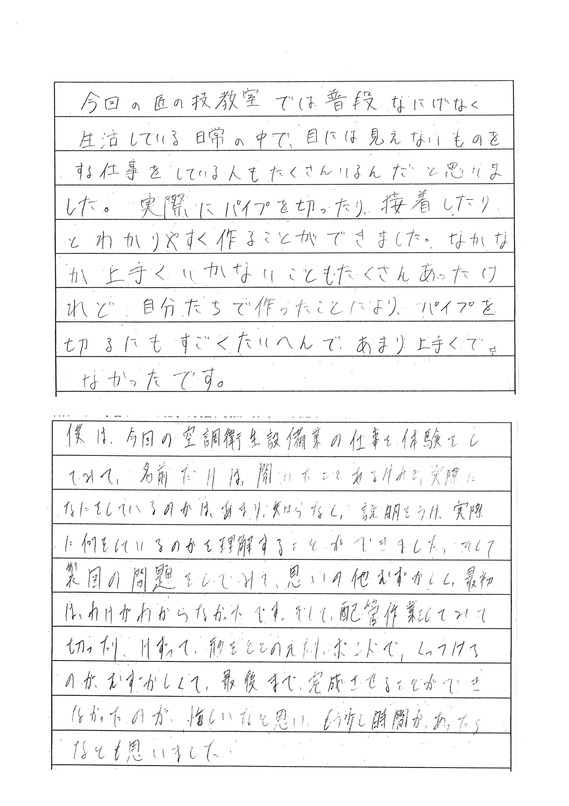 今回の匠の技教室では普段なにげなく
生活している日常の中で、目には見えないものを
する仕事をしている人もたくさんいるんだと思いま
した。実際にパイプを切ったり、接着したり
とわかりやすく作ることができました。なかな
か上手くいかないこともたくさんあったけ
れど、自分たちで作ったことにより、パイプを
切るにもすごくたいへんで、あまり上手くでき
なかったです。
僕は、今回の空調衛生設備業の仕事を体験をし
てみて、名前だけは、聞いたことあるけれど、実際に
なにをしているのかは、あまり、知らなくて、説明をうけ、実際
に何をしているのかを理解することができました。そして
製図の問題をしてみて、思いの他むずかしく、最初
は、わけがわからなかったです。そして、配管作業をしてみて
切ったり、けずって、形をととのえたり、ボンドで、くっつける
のが、むずかしくて、最後まで、完成させることができ
なかったのが、悔しいなと思い、もう少し時間が、あったら
なとも思いました。